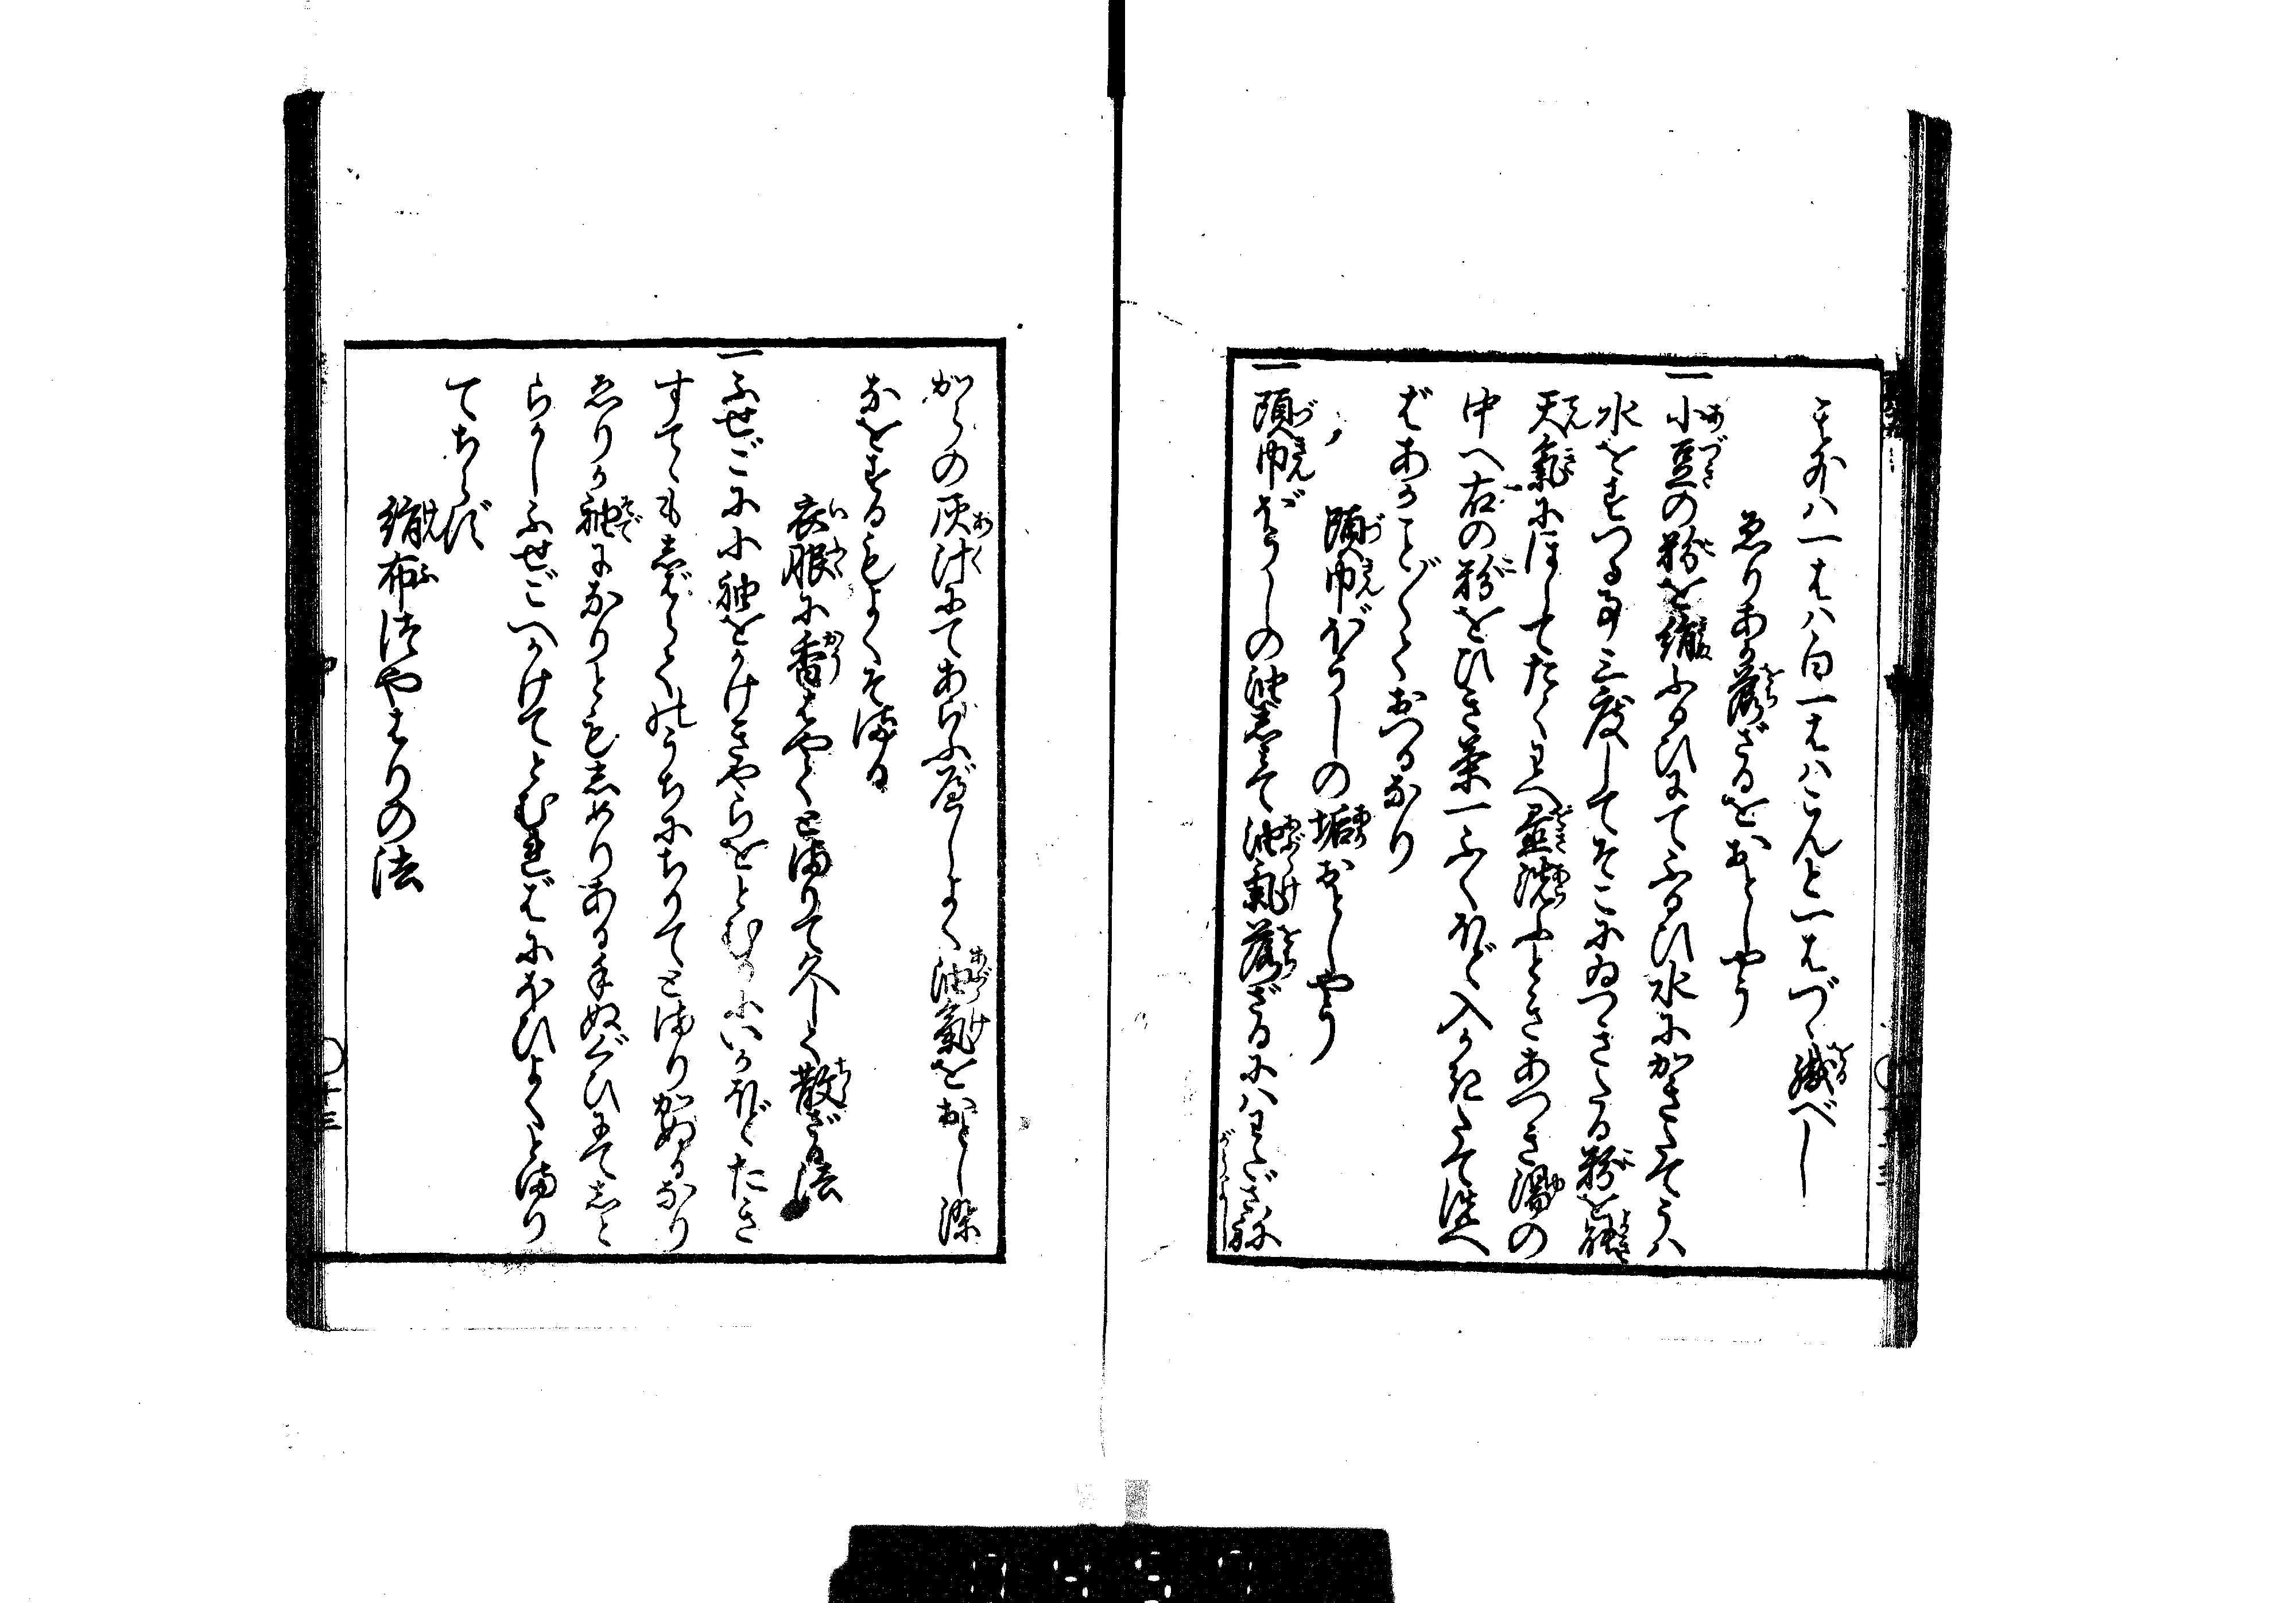 其外ハ一もハ白一もハこんと一もづゝ織べし
ゑりあか落ざるをおとしやう
一小豆の粉を絹ふるひにてふるひ水にかきたてうハ
水をすつる事三度してそこにゐつきたる粉を能
天氣にほしてたくわへ置洗ふときあつき湯の
中へ右の粉をひき茶一ふくほど入かきたて洗へ
ばあかこと〴〵くおつるなり
頭巾ぼうしの垢おとしやう
一頭巾ぼうしの油しみて油氣落ざるにハわたざね
がらの灰汁にてあらふ屋しよく油氣をおとし染
なをするもよくそまる
衣服に香はやくとまりて久しく散ざる法
一ふせごに小袖をかけきやらをとむるにいかほどたき
すてゝも志ばらくのうちにちりてとまりかぬるなり
ゑりか袖になりとも志めりある手ぬぐひにて志と
らかしふせごへかけてとむればにほひよくとまり
てちらず
絹布洗やはりの法
十三